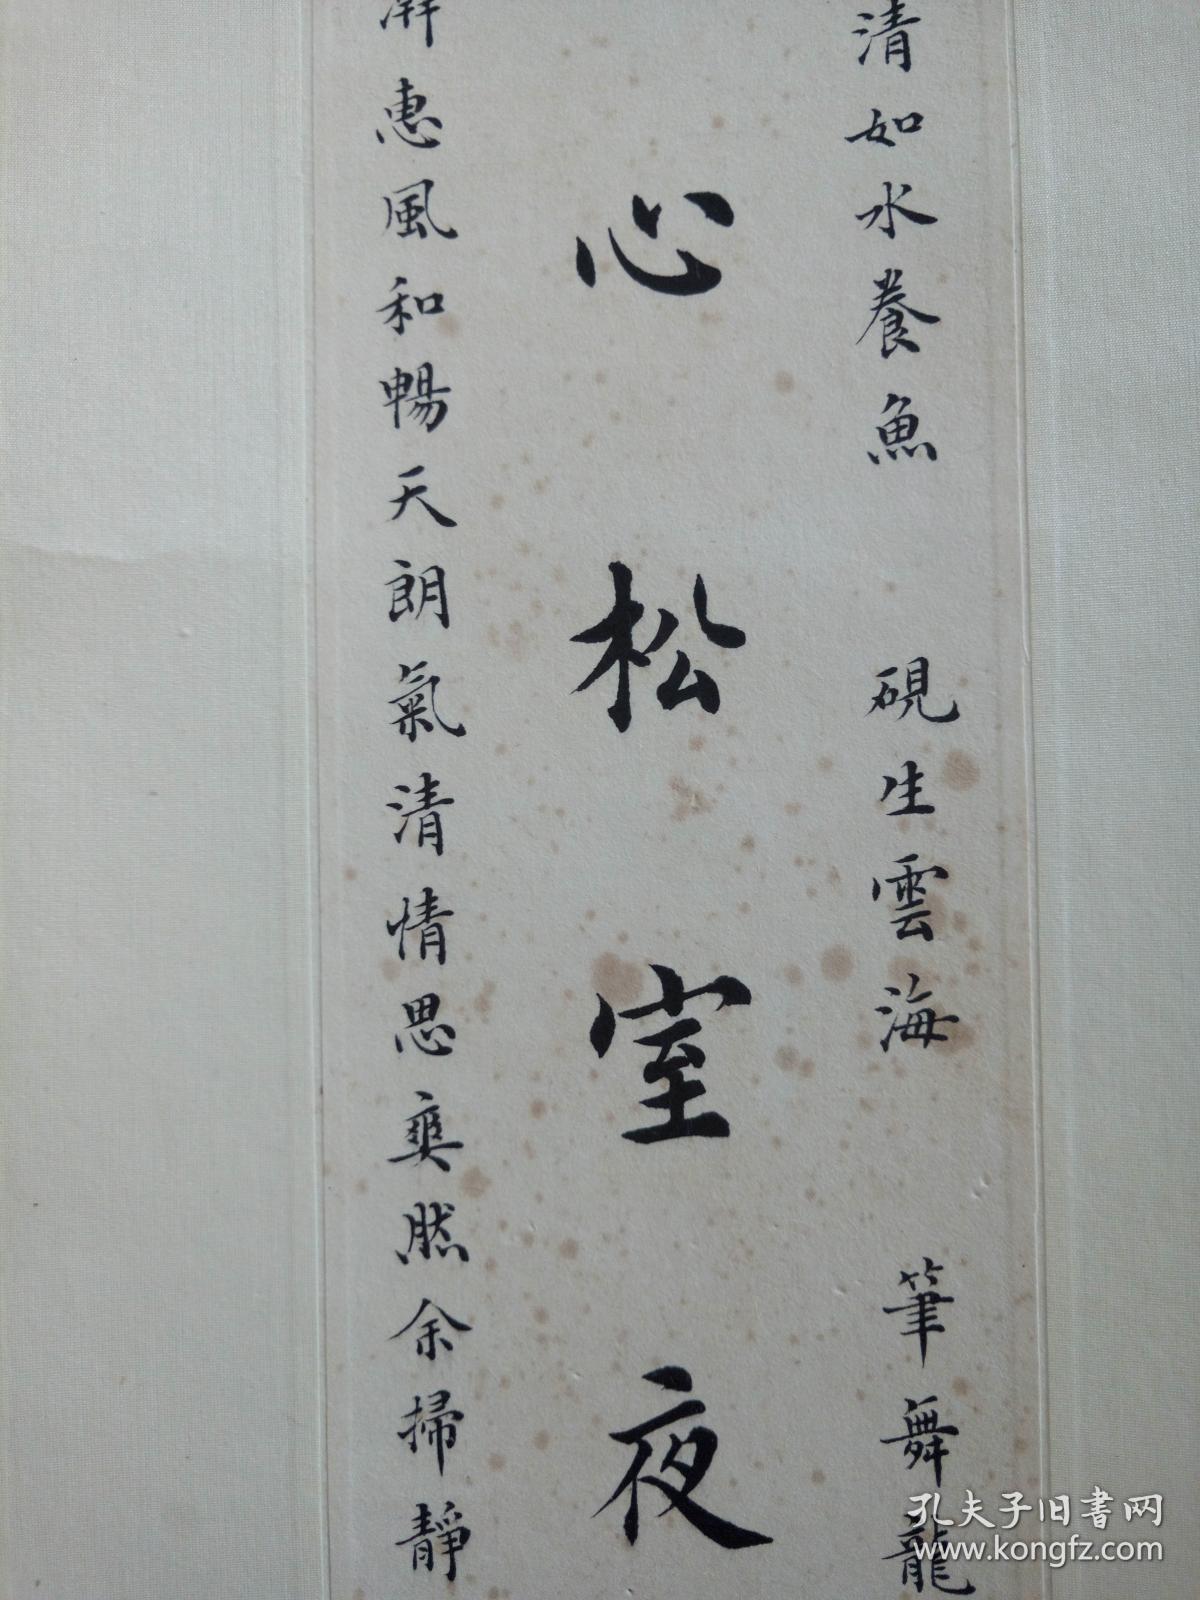 清如水養魚 硯生雲海 筆舞龍
心松室夜
惠風和暢天朗氣清情思爽然余掃靜
孔夫子旧书网
www.kongfz.com